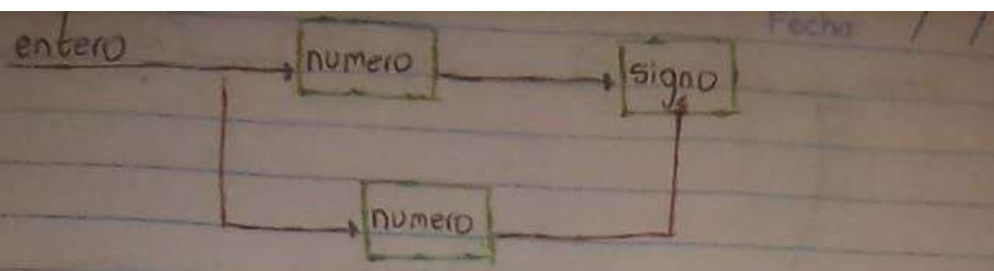 Fecho / /
entero
numero
signo
numero